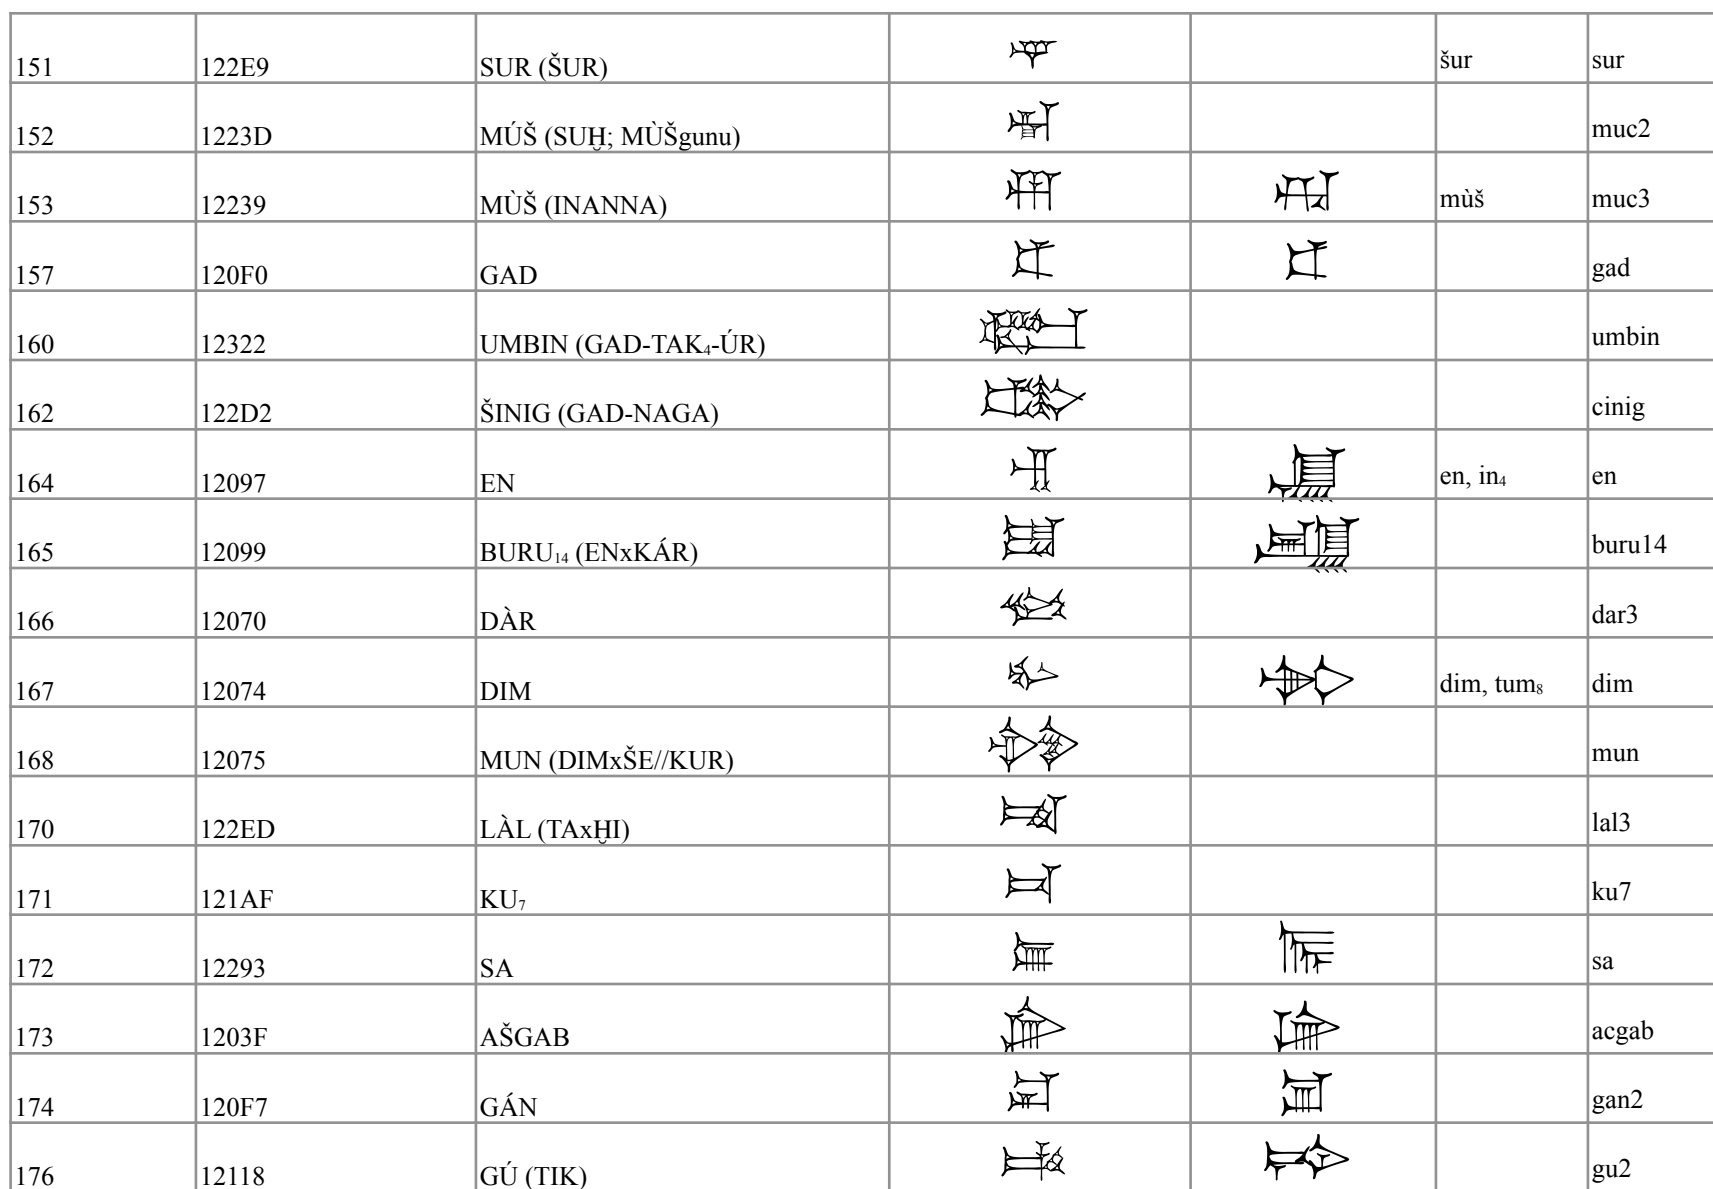 151 122E9 SUR (ŠUR) 𒋩 šur sur
152 1223D MÚŠ (SUḪ; MÙŠgunu) 𒈽 muc2
153 12239 MÙŠ (INANNA) 𒈹 𒈹 mùš muc3
157 120F0 GAD 𒃰 𒃰 gad
160 12322 UMBIN (GAD-TAK₄-ÚR) 𒌢 umbin
162 122D2 ŠINIG (GAD-NAGA) 𒋒 cinig
164 12097 EN 𒂗 𒂗 en, in₄ en
165 12099 BURU₁₄ (ENxKÁR) 𒂙 𒂙 buru14
166 12070 DÀR 𒁰 dar3
167 12074 DIM 𒁴 𒁴 dim, tum₈ dim
168 12075 MUN (DIMxŠE//KUR) 𒁵 mun
170 122ED LÀL (TAxḪI) 𒋭 lal3
171 121AF KU₇ 𒆯 ku7
172 12293 SA 𒊓 𒊓 sa
173 1203F AŠGAB 𒀿 𒀿 acgab
174 120F7 GÁN 𒃷 𒃷 gan2
176 12118 GÚ (TIK) 𒄘 𒄘 gu2